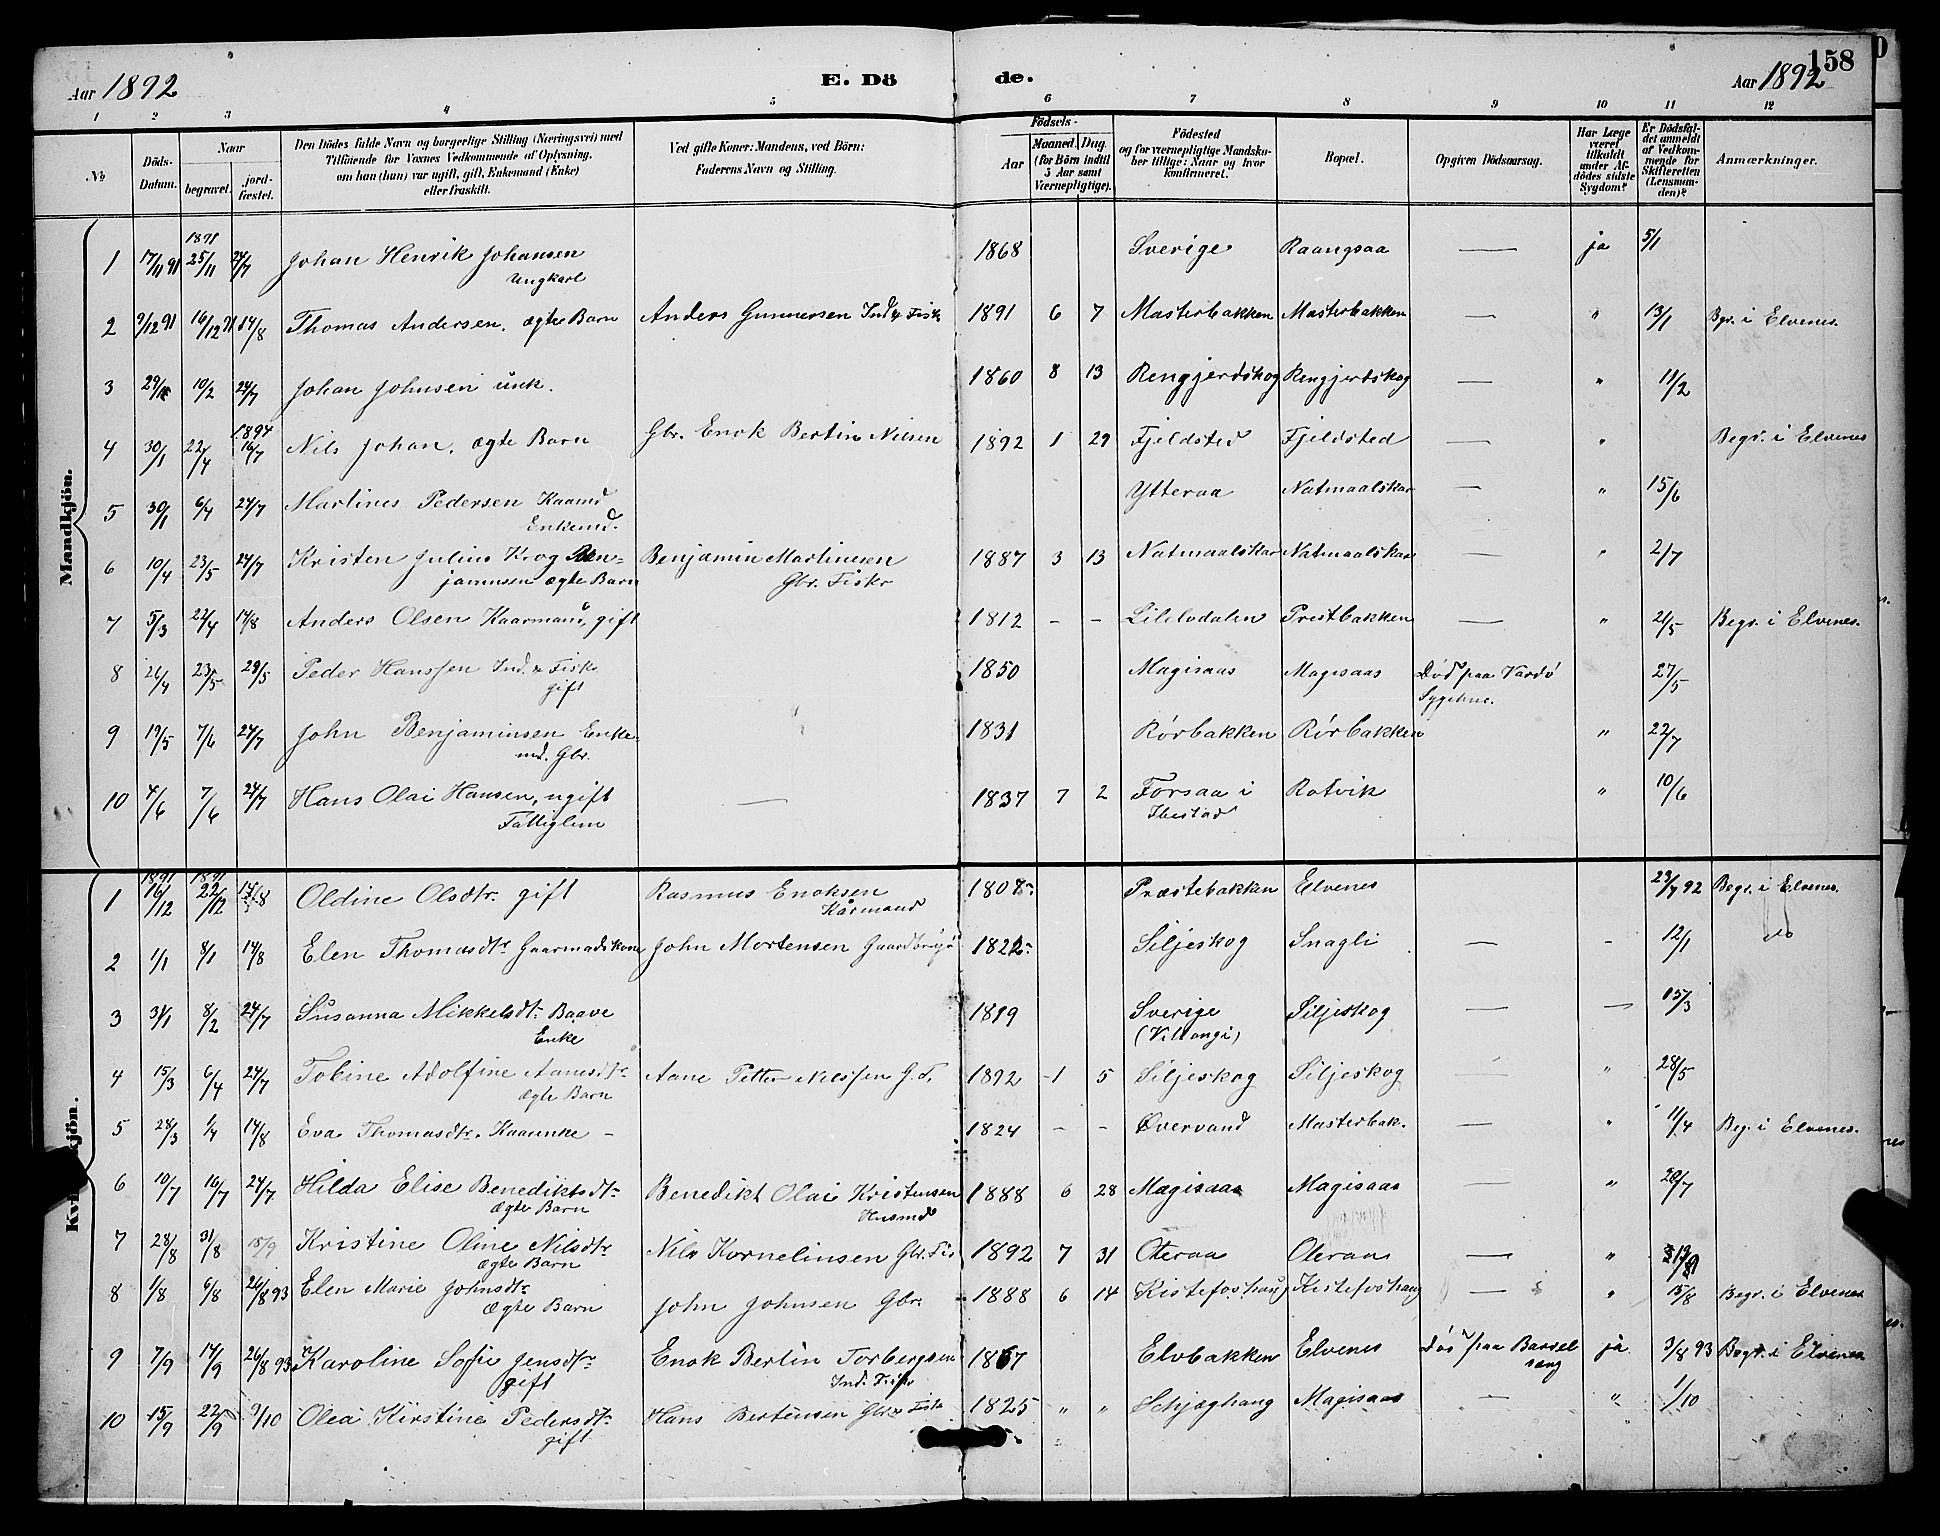 Aar 1892 E. Dö de. Aar 1892 158
1 2 3 4 5 6 7 8 9 10 11 12
No Döds-Datum. Naar begravet. jordfæstet. Den Dödes fulde Navn og borgerlige Stilling (Næringsvei) med Tilföiende for Voxnes Vedkommende af Oplysning, om han (hun) var ugift, gift, Enkemand (Enke) eller fraskilt. Ved gifte Koner: Mandens, ved Börn: Faderens Navn og Stilling. Födsels- Aar Maaned. Dag. (for Börn indtil 5 Aar samt Værnepligtige). Födested og for værnepligtige Mandskaber tillige: Naar og hvor konfirmeret. Bopæl. Opgiven Dödsaarsag. Har Læge været tilkaldt under Afdödes sidste Sygdom? Er Dödsfaldet anmeldt af Vedkommende for Skifteretten (Lensmanden)? Anmærkninger.
Mandkjön.
1 17/11 91 1891 25/11 24/7 Johan Henrik Johansen Ungkarl 1868 Sverige Raangsaa — ja 5/1
2 9/12 91 16/12 91 14/8 Thomas Andersen, ægte Barn Anders Gunnersen Ind. & Fisk 1891 6 7 Masterbakken Masterbakken — " 13/1 Bgr. i Elvenes.
3 10/2 24/7 Johan Johnsen unk. 1860 8 13 Rengjerdskog Rengjerdskog — " 11/2
4 30/1 22/4 1894 16/7 Nils Johan, ægte Barn Gbr. Enok Bertin Nilsen 1892 1 29 Fjeldsted Fjeldsted — " Begr. i Elvenes
5 30/1 6/4 24/7 Martines Pedersen Kaamd Enkemd. Ytteraa Natmaalskar — " 15/6
6 10/4 23/5 24/7 Kristen Julius Krog Ben-jaminsen ægte Barn Benjamin Martinesen Gbr. Fiskr 1887 3 13 Natmaalskar Natmaalskar — " 2/7
7 5/3 22/4 14/8 Anders Olsen Kaarmand, gift 1812 - - Lilelvdalen Prestbakken — " 21/5 Begr. i Elvenes.
8 23/5 29/5 Peder Hanssen Ind. & Fisk. gift 1850 Magisaas Magisaas Død paa Vardø Sygehus. 27/5
9 19/5 7/6 24/7 John Benjaminsen Enke-md. Gbr. 1831 Rørbakken Rørbakken " 22/7
10 4/6 7/6 24/7 Hans Olai Hansen, ugift Fattiglem — 1837 7 2 Forsaa i Ibestad Rotvik " 10/6
Kvindkjön.
1 1891 16/12 1891 22/12 14/8 Oldine Olsdtr. gift Rasmus Enoksen Kårmand 1808 Præstebakken Elvenes 23/7 92 Begr. i Elvenes.
2 1/1 8/1 14/8 Elen Thomasdtr Gaarmadskone John Mortensen 1822 Siljeskog Snagli — - 12/1 do
3 31/1 8/2 24/7 Susanna Mikkelsdtr Baave Enke 1819 Sverige Siljeskog — — 15/3
4 15/3 6/4 24/7 Tobine Adolfine Aanesdtr ægte Barn Aane Petter Nilssen G.F. 1892 1 5 Siljeskog Siljeskog — " 28/5
5 28/3 1/4 14/8 Eva Thomasdtr. Kaarenke - 1824 - - Øvervand Masterbak. — " 11/4 Beg. i Elvenes.
6 10/7 16/7 24/7 Hilda Elise Benediktsdtr ægte Barn Benedikt Olai Kristensen Husmd 1888 6 28 Magisaas Magisaas — " 28/7
7 28/8 31/8 18/9 Kristine Oline Nilsdtr ægte Barn Nils Kornelinsen Gbr. Fis 1892 7 31 Oteraa Oteraa — "
8 1/8 6/8 26/8 93 Elen Marie Johnsdtr ægte Barn John Johnsen Gbr. 1888 6 14 Kistefoshaug Kistefoshaug — " 15/8 Begr. i Elvenes
9 7/9 14/9 26/8 93 Karoline Sofie Jensdtr gift Enok Bertin Torbergsen Ind. Fisk 1867 Elvbakken Elvenes Død paa Barsel seng ja 3/8 93 Begr. i Elvenes
10 15/9 22/9 9/10 Olea Kirstine Pedersdtr gift Hans Bertensen Gbr & Fisk 1825 " " Schjæghaug Magisaas — " 1/10